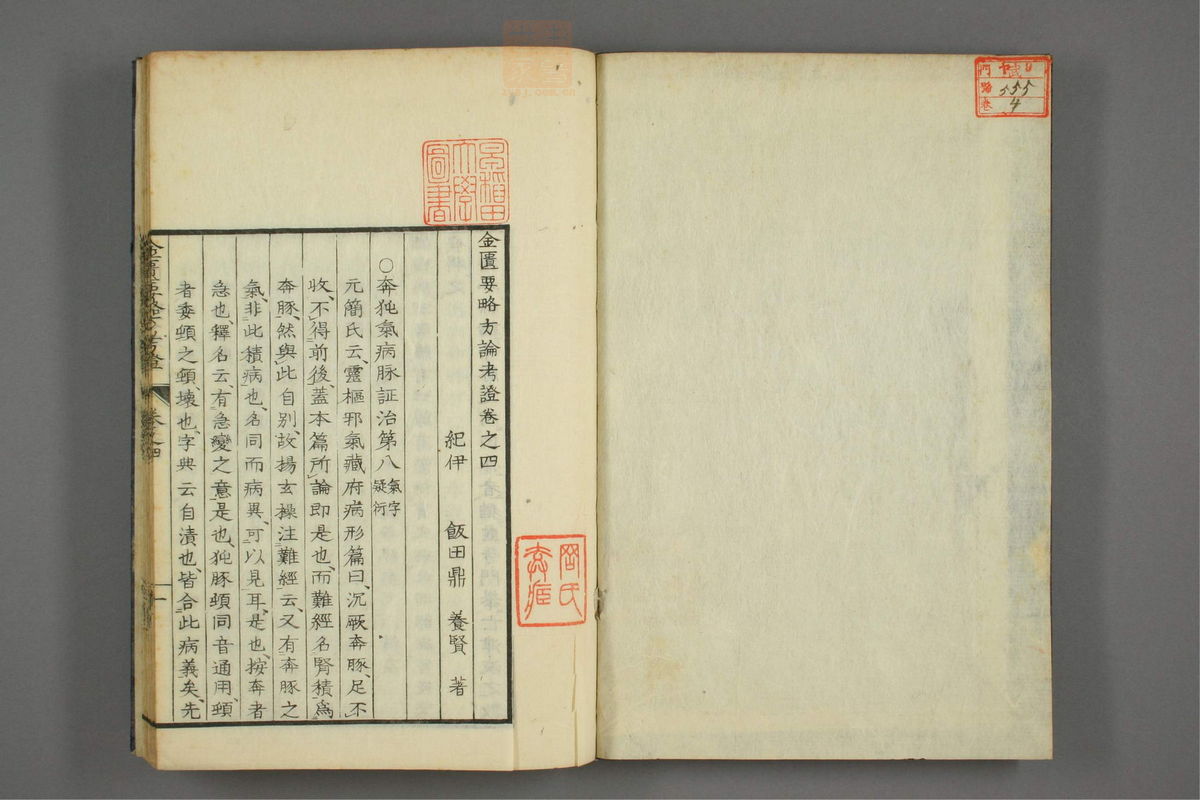 金匱要略方論考證卷之四
紀伊 飯田鼎 養賢 著
○奔㹠氣病脉証治第八 氣字疑衍
元簡氏云、靈樞邪氣藏府病形篇曰、沉厥奔豚、足不
收、不得前後、蓋本篇所論即是也、而難經名腎積爲
奔豚、然與此自别、故揚玄操注難經云、又有奔豚之
氣、非此積病也、名同而病異、可以見耳、是也、按奔者
急也、釋名云、有急變之意是也、㹠豚頓同音通用、頓
者委頓之頓、壞也、字典云自漬也、皆合此病義矣、先
卷之四
一
早稻田大學圖書
門
號
卷
555
4